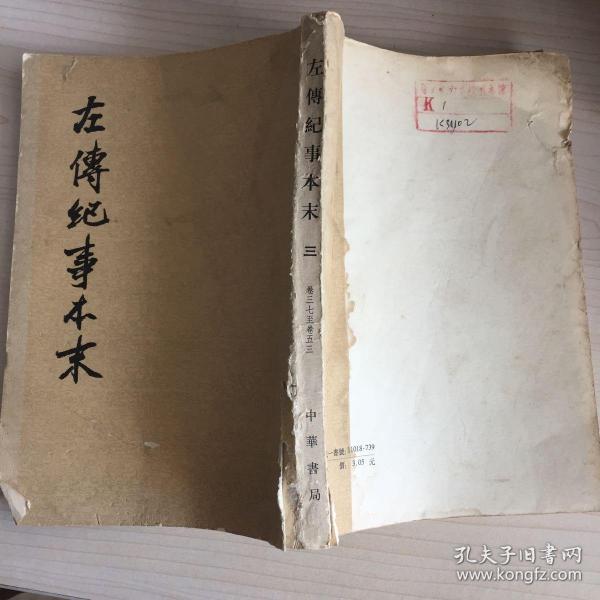 左傳紀事本末
左傳紀事本末 三
卷三七至卷五三
中華書局
K 1
K31102
一書號:11018-739
價: 3.05 元
孔夫子旧书网
www.kongfz.com